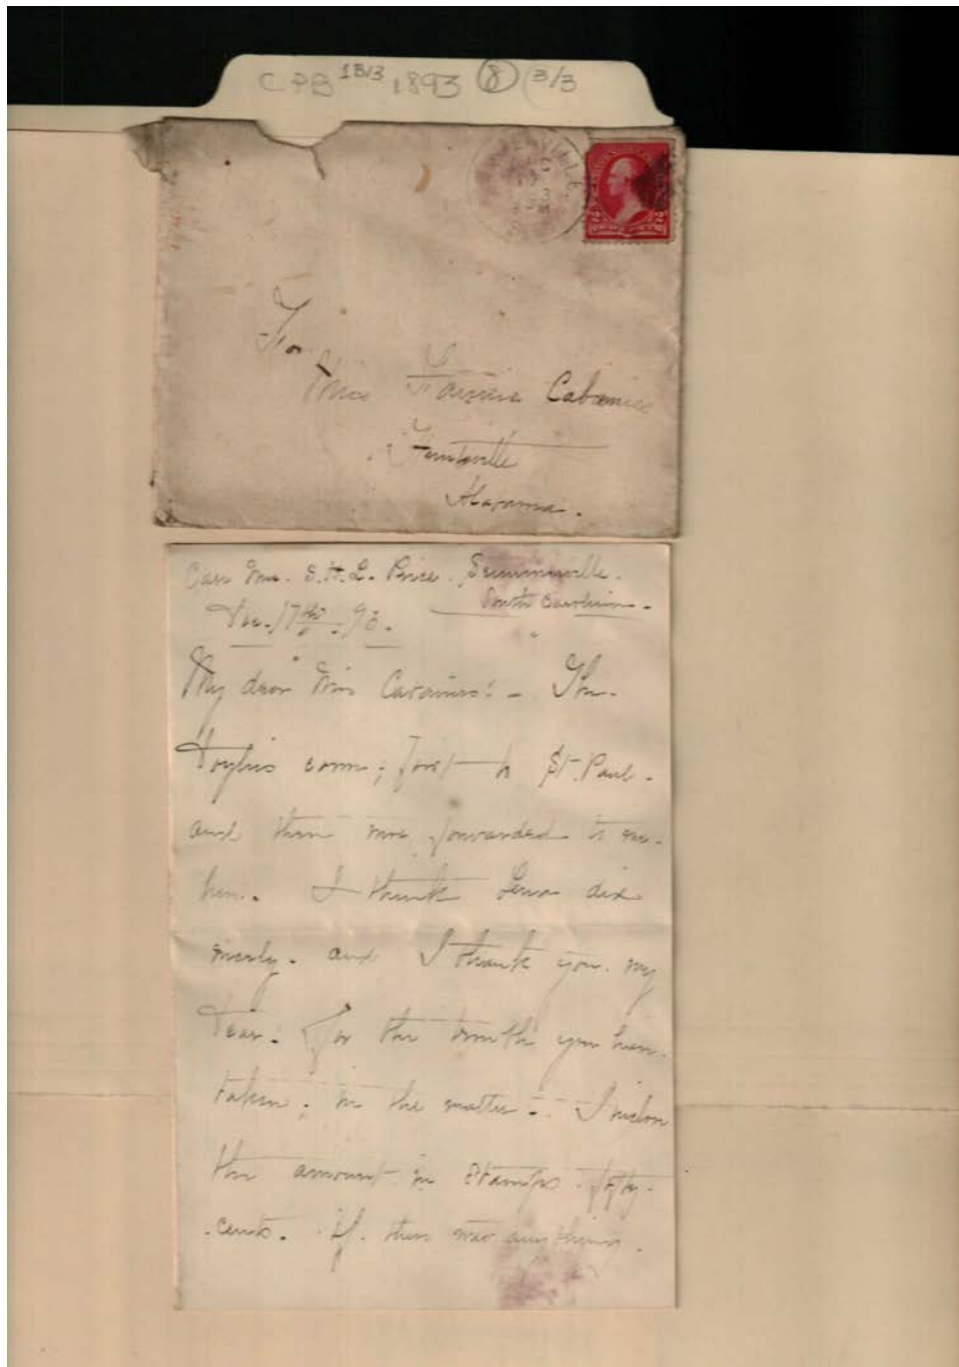 CPB 1B13 1893 8 3/3
For
Miss Fannie Cabaniss
Huntsville
Alabama.
Care Mrs. S. H. L. Price. Summerville.
South Carolina.
Dec. 17th 93.
My dear Miss Cabaniss:- The
come; first to St. Paul.
and then were forwarded to me.
here. I think did
nicely. and I thank you. my
dear. for the trouble you have.
taken; in the matter. I inclose
the amount in stamps. fifty.
cents. If. there was anything.